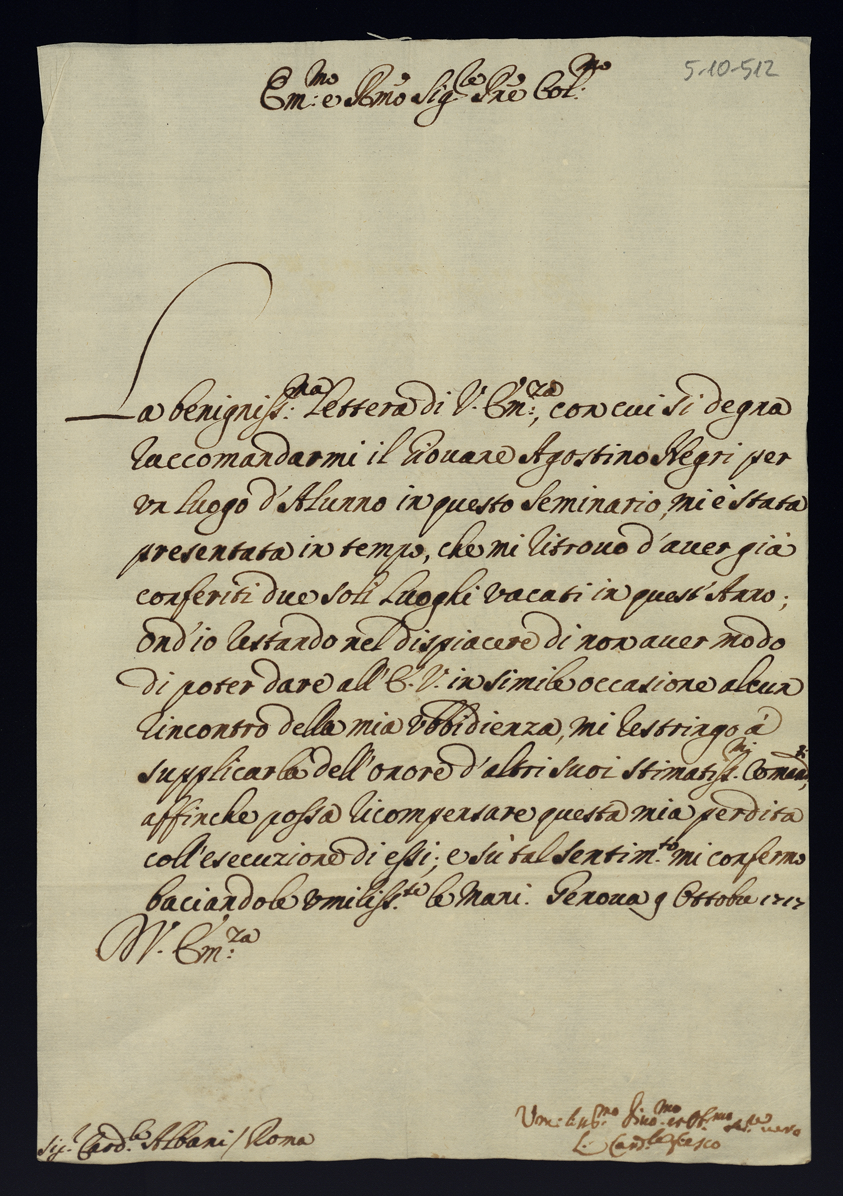 5-10-512
Em:mo e Rmo Sig.re Pne Col:mo
La benigniss:ma Lettera di V. Em:za, con cui si degna
raccomandarmi il Giovane Agostino Negri per
vn Luogo d'Alunno in questo Seminario, mi è stata
presentata in tempo, che mi ritrovo d'aver già
conferiti due soli Luoghi vacati in quest'Anno;
ond'io restando nel dispiacere di non aver modo
di poter dare all'E. V. in simile occasione alcun
rincontro della mia vbbidienza, mi restringo à
supplicarla dell'onore d'altri suoi stimatiss.mi Comandi,
affinche possa ricompensare questa mia perdita
coll'esecuzione di essi; e sù tal sentim.to mi confermo
baciandole vmiliss.te le Mani. Genova 9 Ottobre 1717
W. Em:za
Sig.r Card.le Albani / Roma
Vm: 
L: Card.le Fiesco